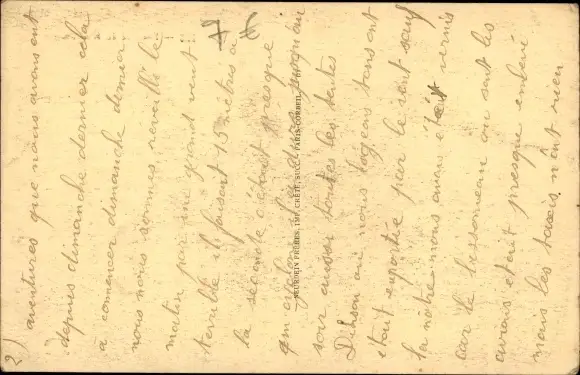 2) aventures que nous avons ent
depuis dimanche dernier cela
a commencer dimanche dernier
nous nous sommes reveillé le
matin par une grand vent
terrible il faisait 15 mètres a
la seconde c'était presque
un cyclone
soir aussi toutes les tentes
où nous logeons tous ont
était emportée par le vent sauf
la nôtre nous avons était vernis
car le bessonneau ou sont les
avions etait presque enlevé
mais les taxis n'ont rien
NEURDEIN FRÈRES, IMP. CRÉTÉ, SUCC. PARIS-CORBEIL